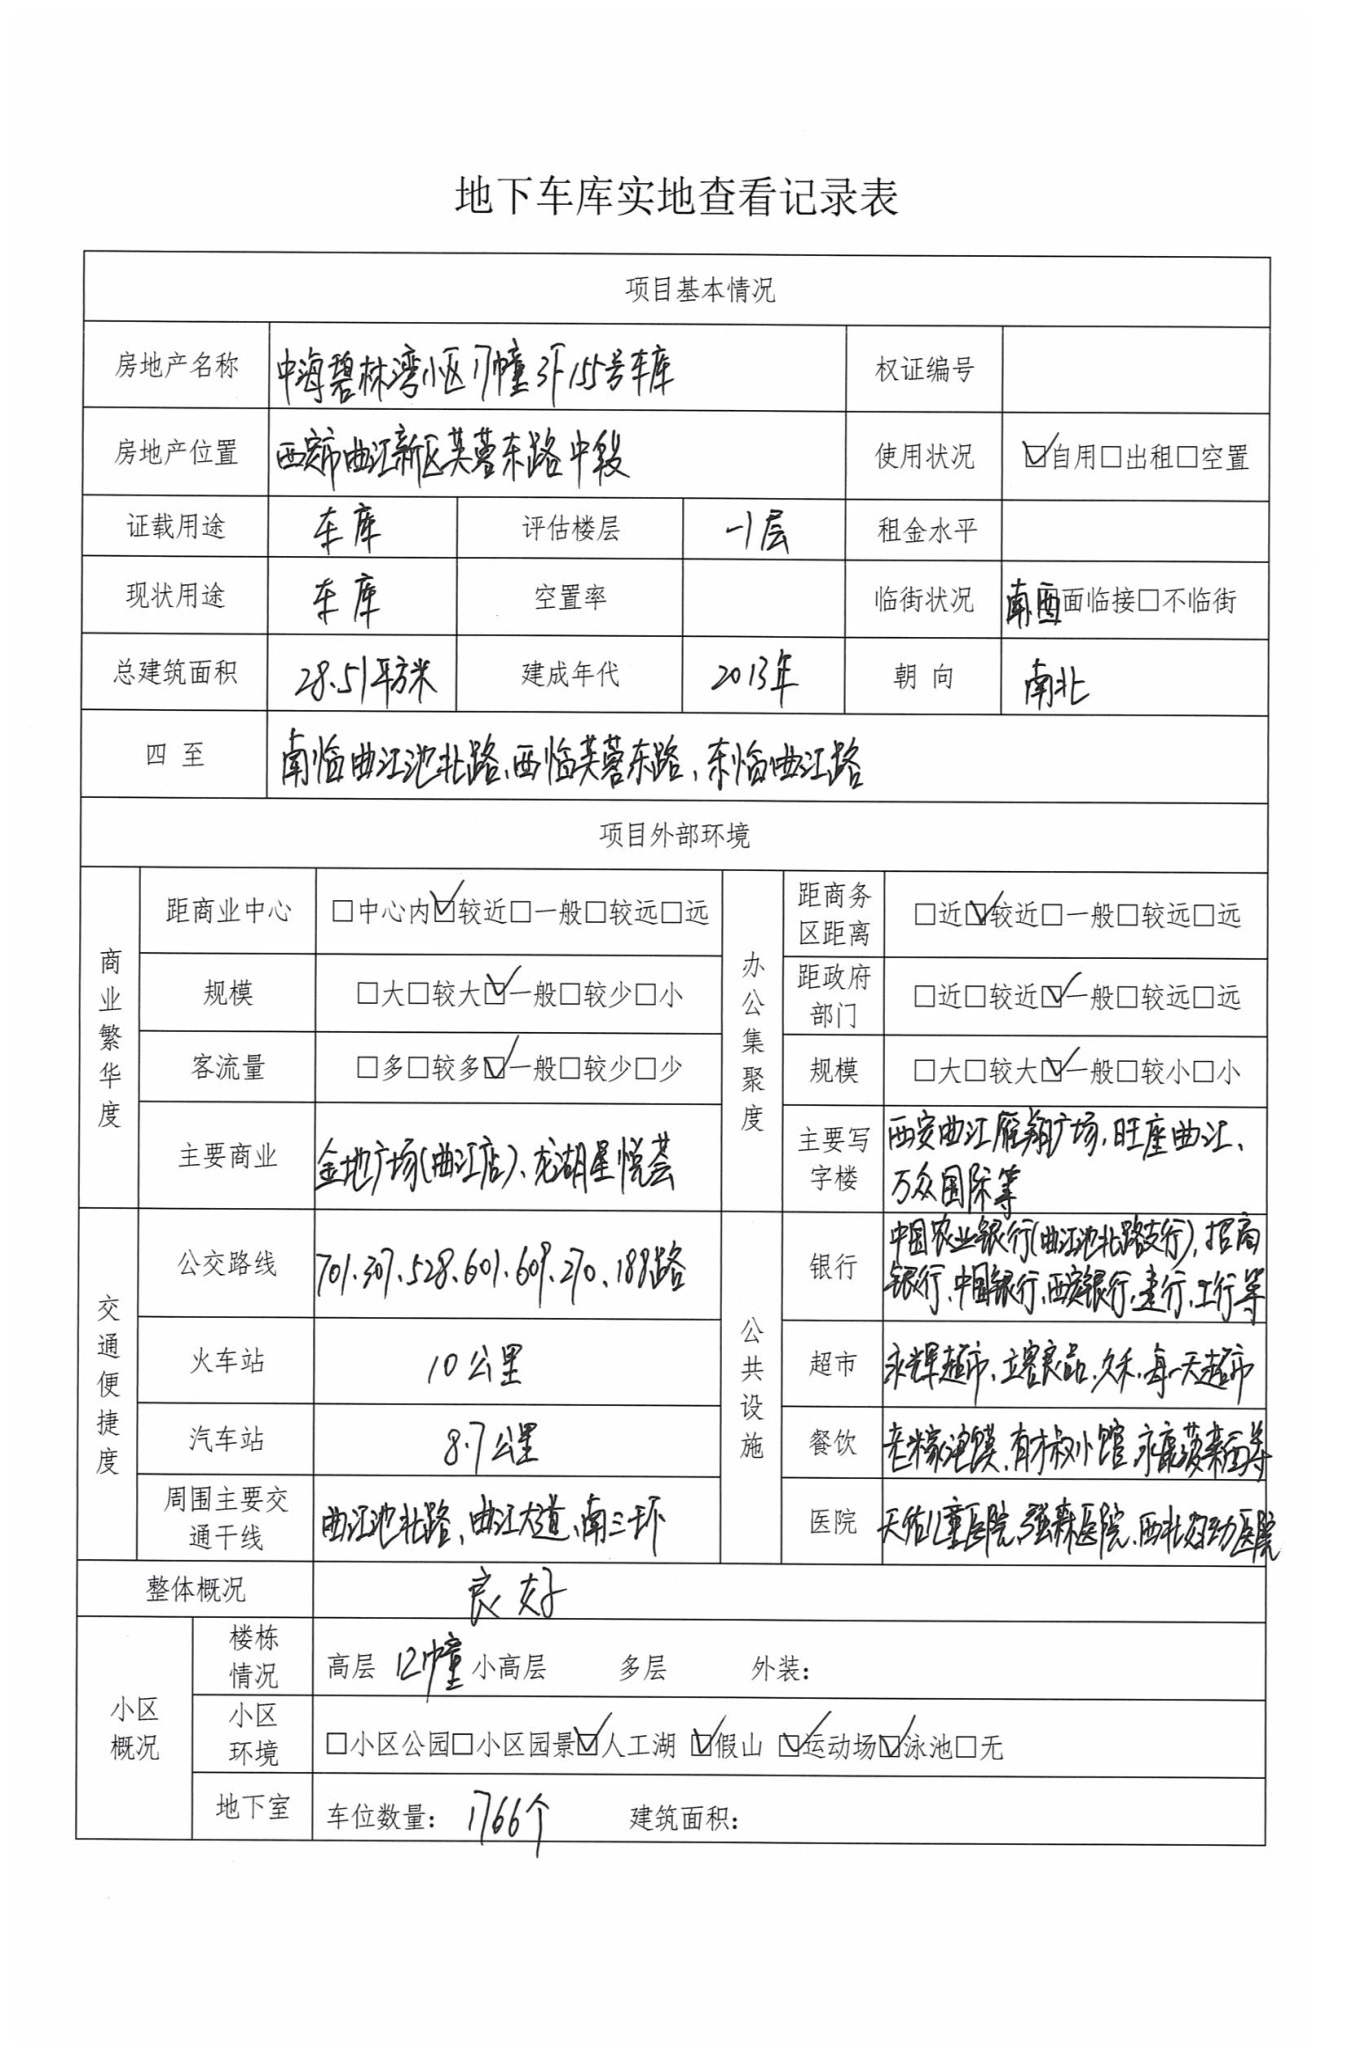 地下车库实地查看记录表
项目基本情况
房地产名称 中海碧林湾小区17幢3F155号车库 权证编号
房地产位置 西安市曲江新区芙蓉东路中段 使用状况 ☑自用□出租□空置
证载用途 车库 评估楼层 -1层 租金水平
现状用途 车库 空置率 临街状况 南西面临接□不临街
总建筑面积 28.51平方米 建成年代 2013年 朝向 南北
四至 南临曲江池北路、西临芙蓉东路、东临曲江路
项目外部环境
商业繁华度 距商业中心 □中心内☑较近□一般□较远□远 办公集聚度 距商务区距离 □近☑较近□一般□较远□远
规模 □大□较大☑一般□较少□小 距政府部门 □近□较近☑一般□较远□远
客流量 □多□较多☑一般□较少□少 规模 □大□较大☑一般□较小□小
主要商业 金地广场(曲江店)、龙湖星悦荟 主要写字楼 西安曲江雁翔广场、旺座曲江、
万众国际等
交通便捷度 公交路线 701、307、528、601、609、270、188路 公共设施 银行 中国农业银行(曲江池北路支行)、招商
银行、中国银行、西安银行、建行、工行等
火车站 10公里 超市 永辉超市、立客良品、久禾、每一天超市
汽车站 8.7公里 餐饮 老米家泡馍、有才叔小馆
周围主要交通干线 曲江池北路、曲江大道、南三环 医院 天佑儿童医院、强森医院、西北妇幼医院
整体概况 良好
小区概况 楼栋情况 高层 12幢 小高层 多层 外装：
小区环境 □小区公园□小区园景☑人工湖 ☑假山 ☑运动场☑泳池□无
地下室 车位数量： 1766个 建筑面积：